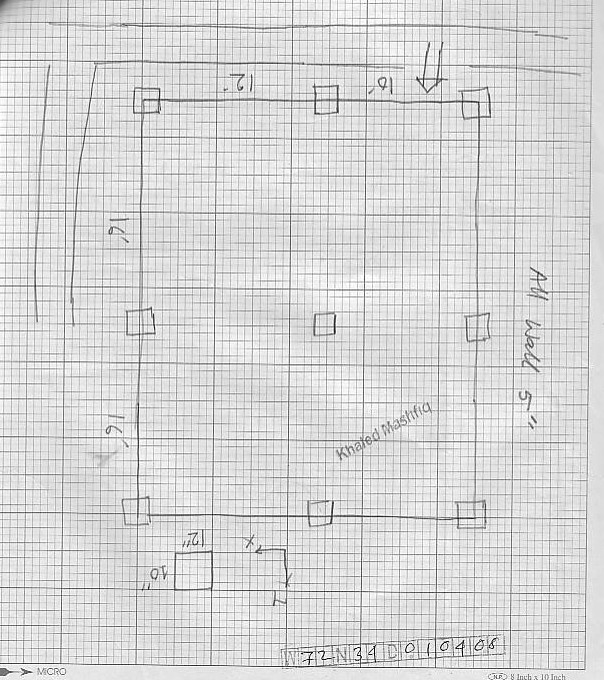 12'
10'
16'
All wall 5"
Khaled Mashfiq
16'
12"
X
10"
W72N34D010408
MICRO
8 Inch x 10 Inch